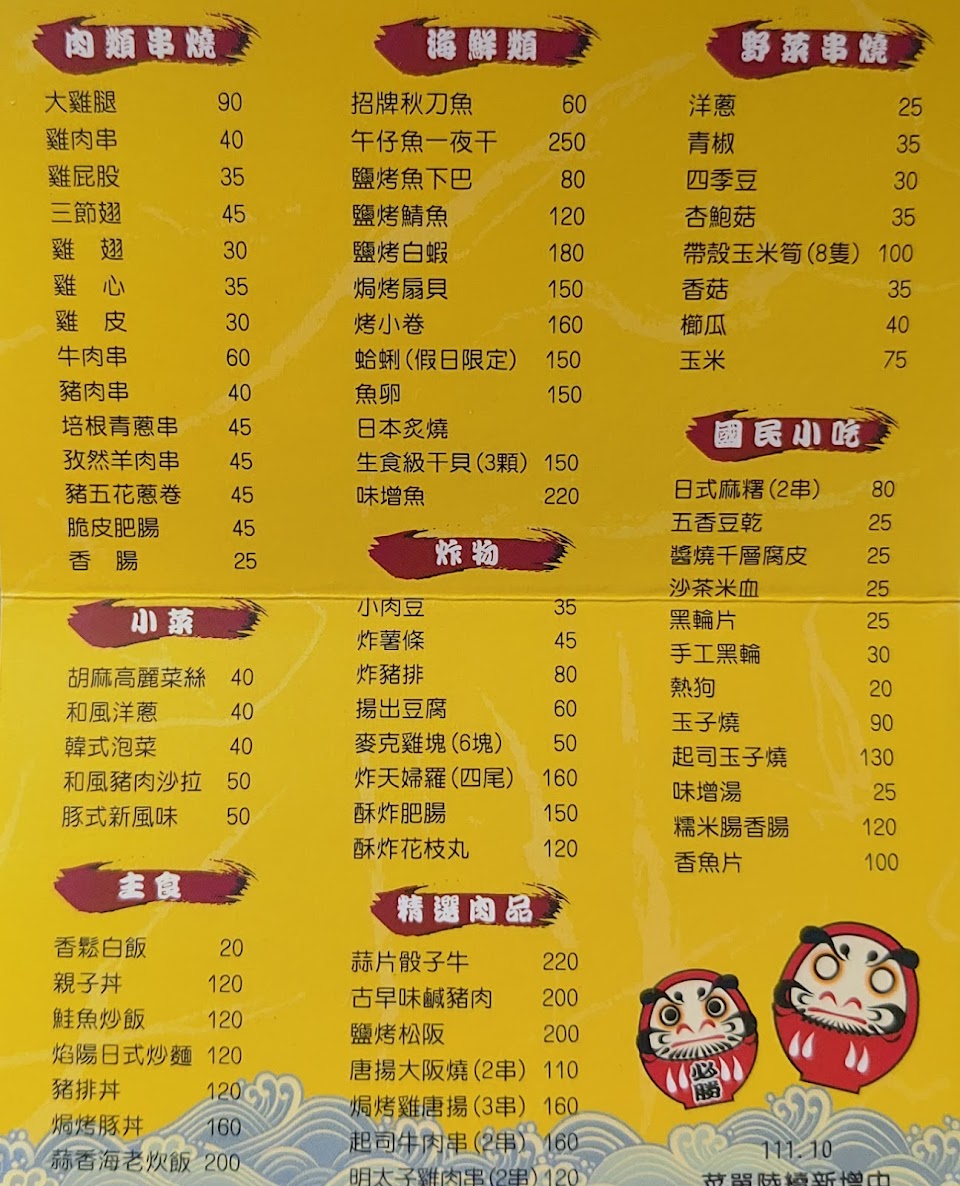 肉類串燒
大雞腿 90
雞肉串 40
雞屁股 35
三節翅 45
雞 翅 30
雞 心 35
雞 皮 30
牛肉串 60
豬肉串 40
培根青蔥串 45
孜然羊肉串 45
豬五花蔥卷 45
脆皮肥腸 45
香 腸 25
小菜
胡麻高麗菜絲 40
和風洋蔥 40
韓式泡菜 40
和風豬肉沙拉 50
豚式新風味 50
主食
香鬆白飯 20
親子丼 120
鮭魚炒飯 120
焰陽日式炒麵 120
豬排丼 120
焗烤豚丼 160
蒜香海老炊飯 200
海鮮類
招牌秋刀魚 60
午仔魚一夜干 250
鹽烤魚下巴 80
鹽烤鯖魚 120
鹽烤白蝦 180
焗烤扇貝 150
烤小卷 160
蛤蜊(假日限定) 150
魚卵 150
日本炙燒
生食級干貝(3顆) 150
味增魚 220
炸物
小肉豆 35
炸薯條 45
炸豬排 80
揚出豆腐 60
麥克雞塊(6塊) 50
炸天婦羅(四尾) 160
酥炸肥腸 150
酥炸花枝丸 120
精選肉品
蒜片骰子牛 220
古早味鹹豬肉 200
鹽烤松阪 200
唐揚大阪燒(2串) 110
焗烤雞唐揚(3串) 160
起司牛肉串(2串) 160
明太子雞肉串(2串) 120
野菜串燒
洋蔥 25
青椒 35
四季豆 30
杏鮑菇 35
帶殼玉米筍(8隻) 100
香菇 35
櫛瓜 40
玉米 75
國民小吃
日式麻糬(2串) 80
五香豆乾 25
醬燒千層腐皮 25
沙茶米血 25
黑輪片 25
手工黑輪 30
熱狗 20
玉子燒 90
起司玉子燒 130
味增湯 25
糯米腸香腸 120
香魚片 100
必勝
111.10
菜單陸續新增中